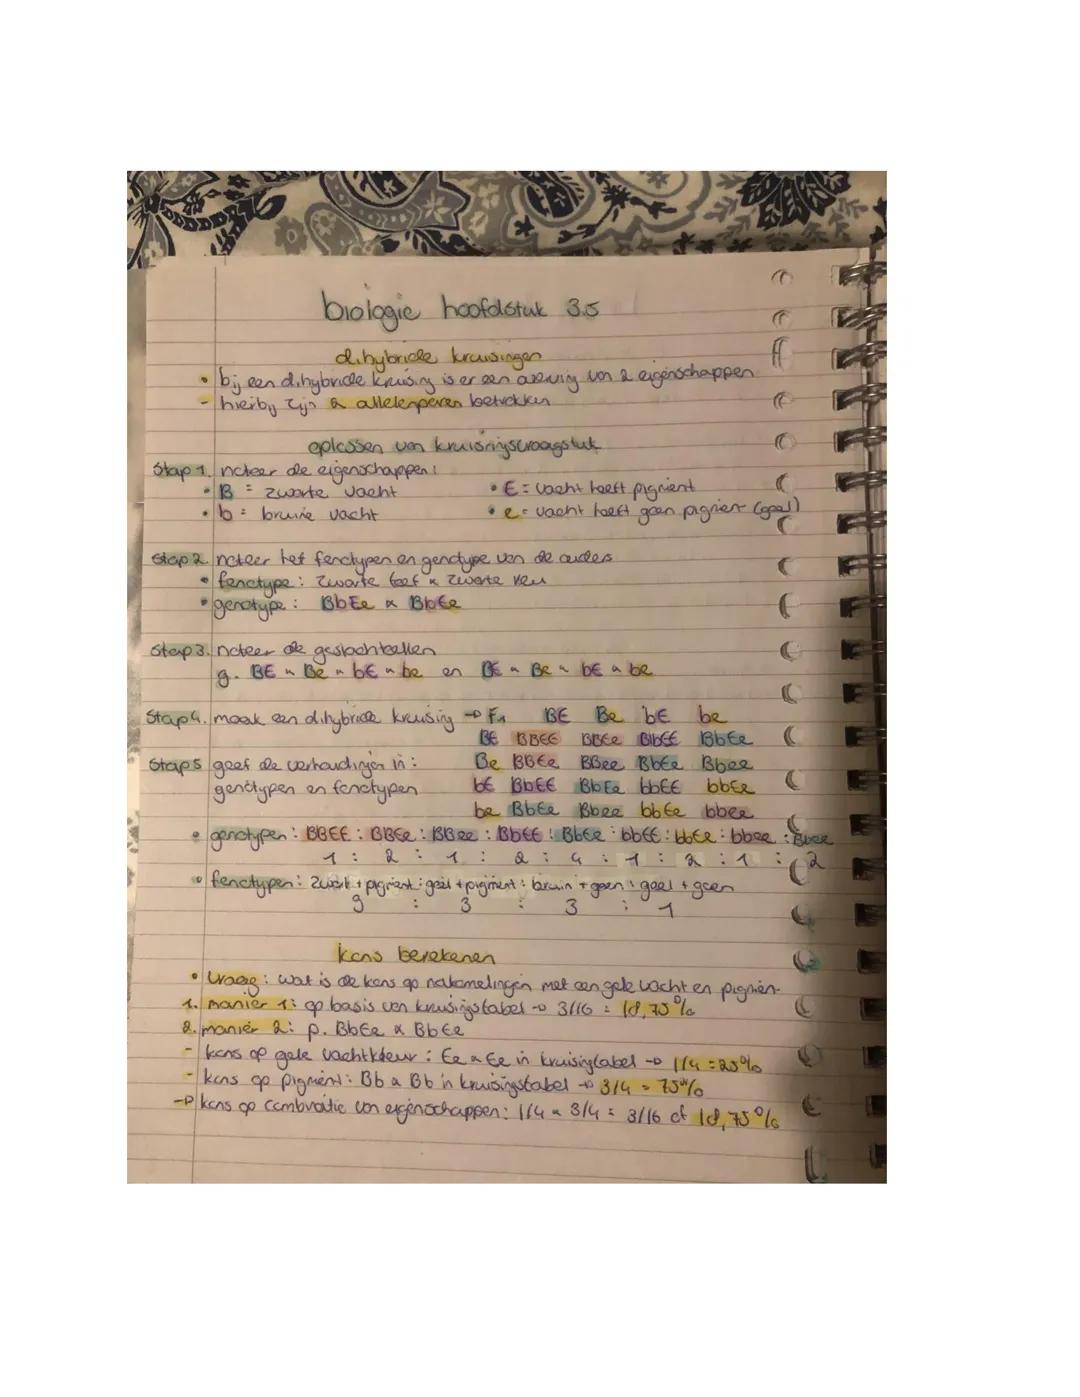 biologie hoofdstuk 3.5
dihybride kruisingen
• bij een dihybride kruising is er een overerving van 2 eigenschappen
- hierbij zijn 2 allelenparen betrokken
oplossen van kruisingsvraagstuk
Stap 1. noteer de eigenschappen:
• B = zwarte vacht • E = vacht heeft pigment
• b = bruine vacht • e = vacht heeft geen pigment (geel)
Stap 2. noteer het fenotypen en genotype van de ouders
• fenotype: zwarte teef x zwarte reu
• genotype: BbEe x BbEe
Stap 3. noteer de geslachtcellen
g. BE x Be x bE x be en BE x Be x bE x be
Stap 4. maak een dihybride kruising → F1 BE Be bE be
BE BBEE BBEe BbEE BbEe
Stap 5 geef de verhoudingen in: Be BBEe BBee BbEe Bbee
genotypen en fenotypen bE BbEE BbEe bbEE bbEe
be BbEe Bbee bbEe bbee
• genotypen: BBEE : BBEe : BBee : BbEE : BbEe : bbEE : bbEe : bbee : Bbee
1 : 2 : 1 : 2 : 4 : 1 : 2 : 1 : 2
• fenotypen: zwart + pigment : geel + pigment : bruin + geen : geel + geen
9 : 3 : 3 : 1
kans berekenen
• vraag: wat is de kans op nakomelingen met een gele vacht en pigment
1. manier 1: op basis van kruisingstabel → 3/16 = 18,75%
2. manier 2: p. BbEe x BbEe
- kans op gele vachtkleur: Ee x Ee in kruisingtabel → 1/4 = 25%
- kans op pigment: Bb x Bb in kruisingstabel → 3/4 = 75%
→ kans op combinatie van eigenschappen: 1/4 x 3/4 = 3/16 of 18,75%